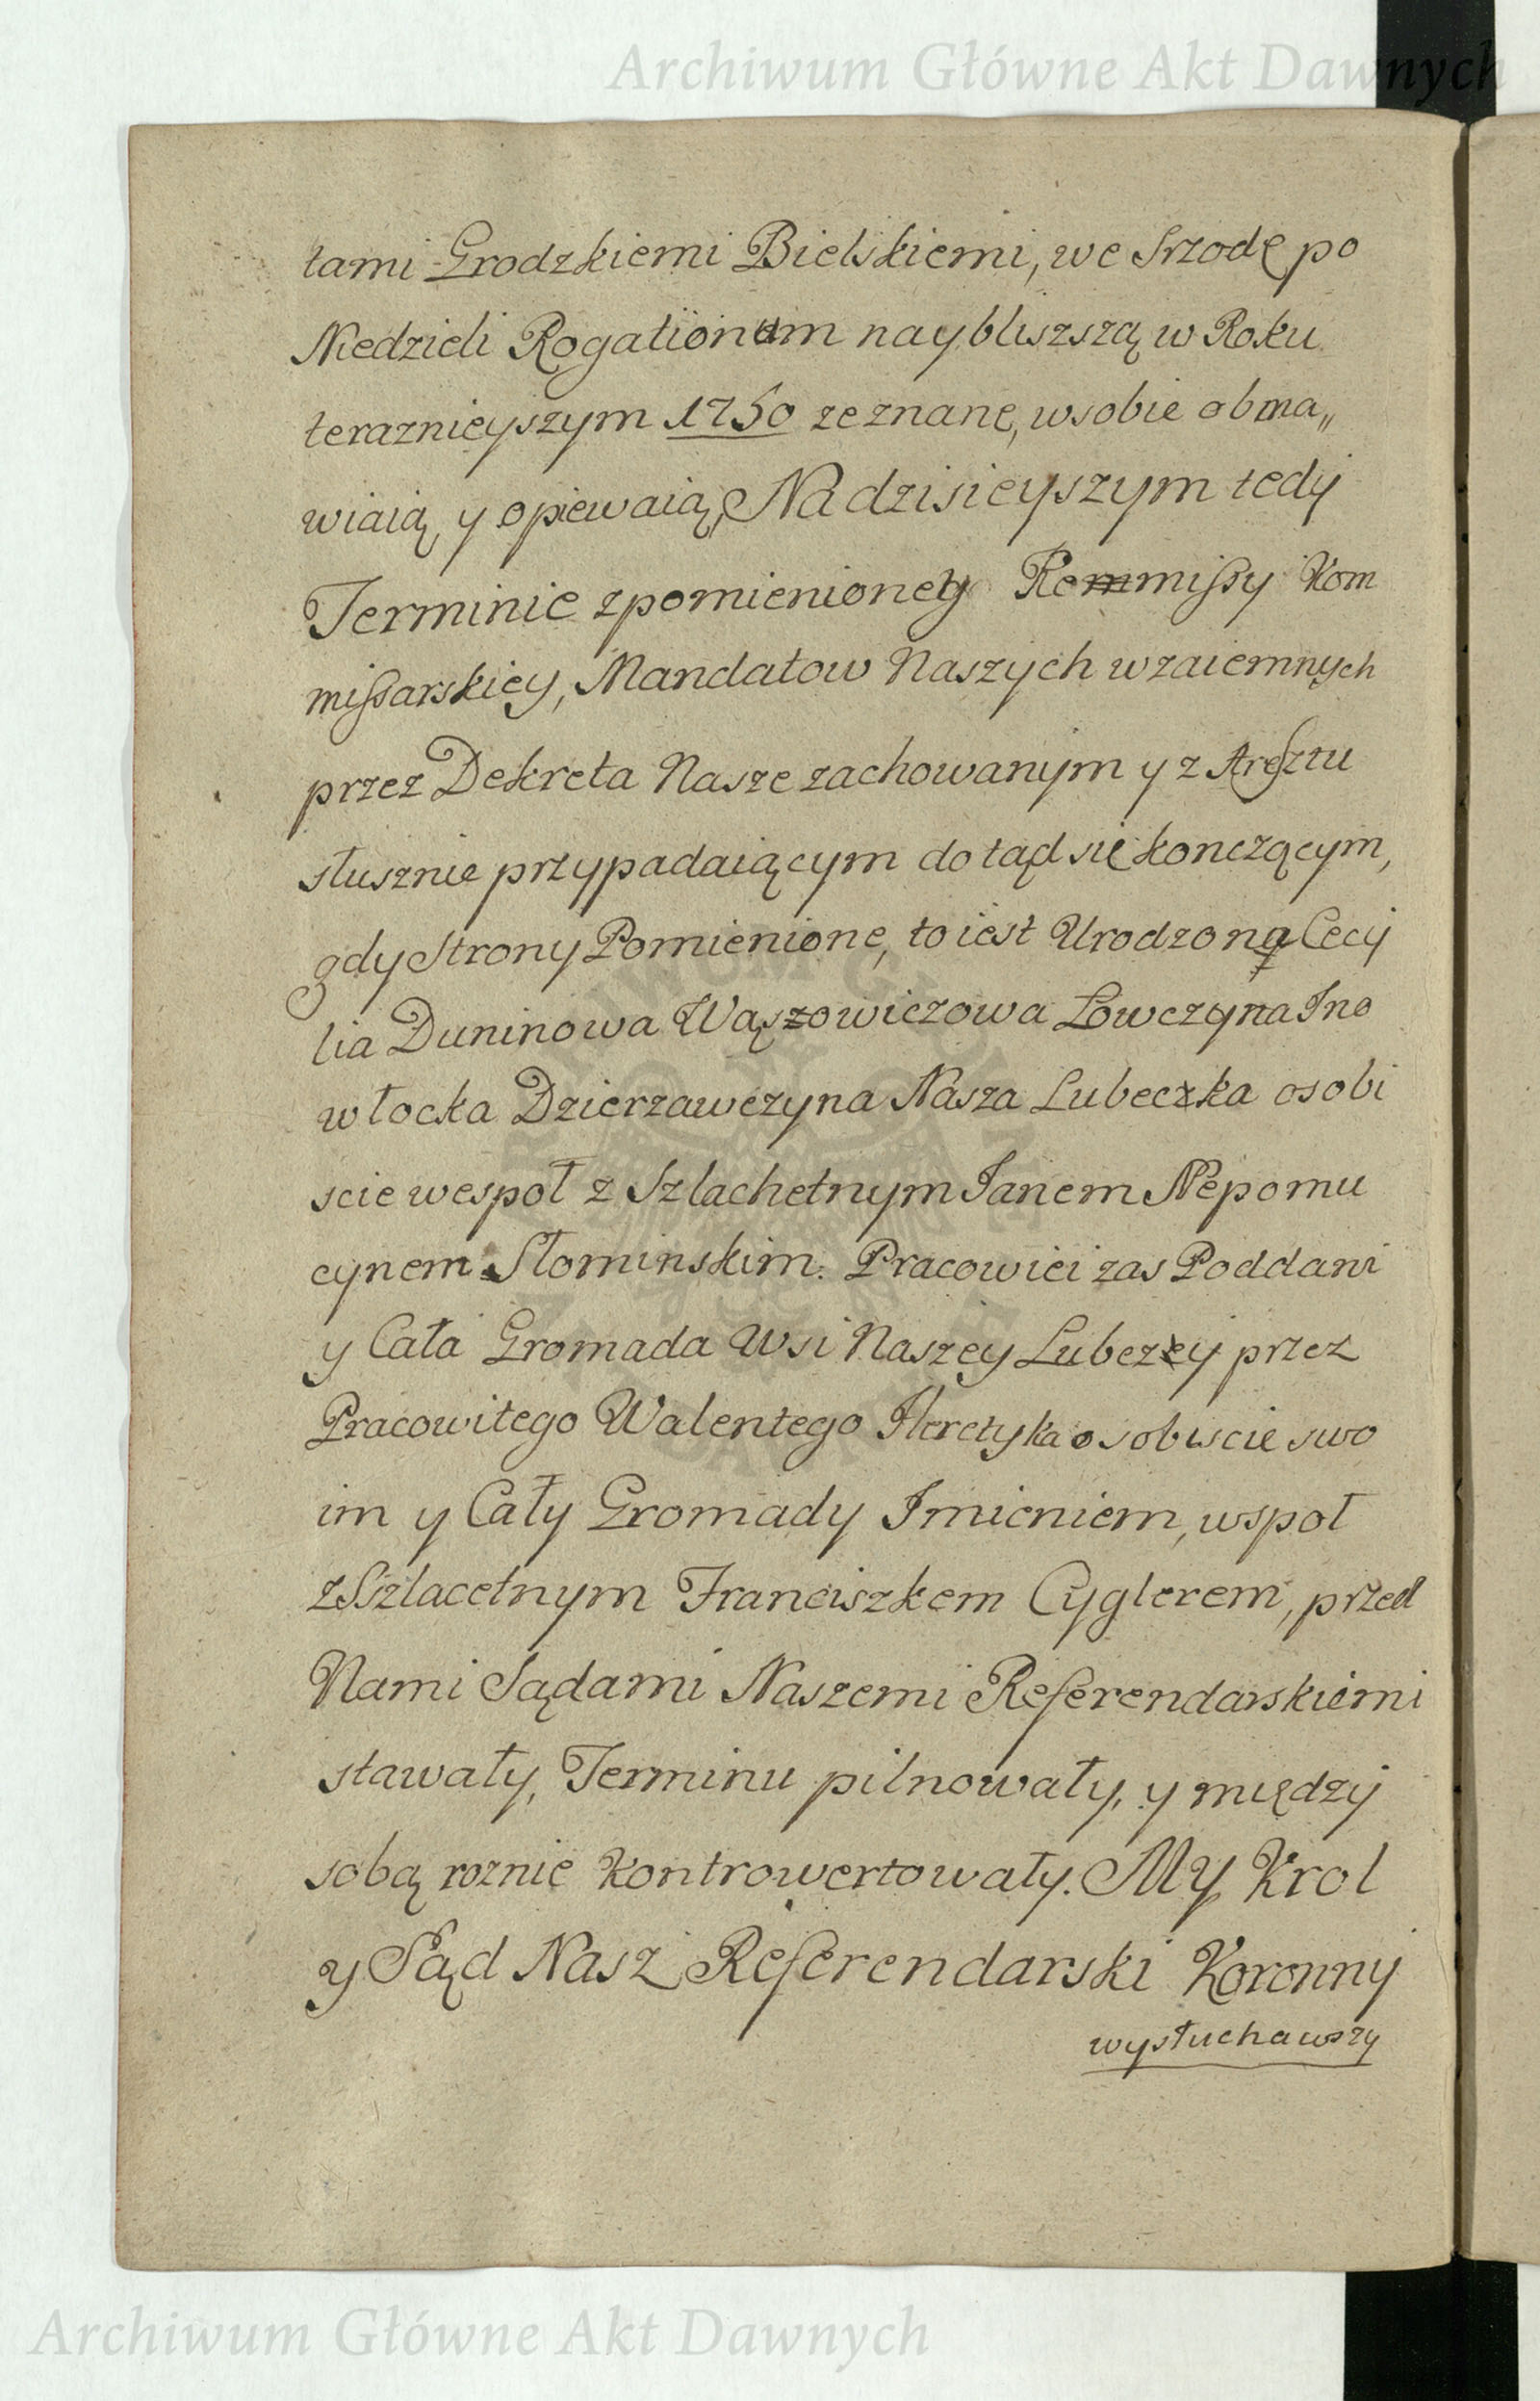 Archiwum Główne Akt Dawnych
tami Grodzkiemi Bielskiemi, we Srzodę po
Niedzieli Rogationum naybliszszą w Roku
teraznieyszym 1750 zeznane, w sobie obma„
wiaią, y opiewaią, Na dzisieyszym tedy
Terminie z pomienioney Remmissy Kom
missarskiey, Mandatow Naszych wzaiemnych
przez Dekreta Nasze zachowanym y z Aresztu
słusznie przypadaiącym do tąd się konczącym,
gdy Strony Pomienione, to iest Urodzona Cecy
lia Duninowa Wąszowiczowa Łowczyna Ino
włocka Dzierzawczyna Nasza Lubeczka osobi
scie wespoł z Szlachetnym Ianem Nepomu
cynem Słominskim. Pracowici zas Poddani
y Cała Gromada Wsi Naszey Lubczey przez
Pracowitego Walentego Heretyka osobiscie swo
im y Cały Gromady Imieniem, wspoł
z Szlacetnym Franciszkem Cyglerem, przed
Nami Sądami Naszemi Referendarskiemi
stawały, Terminu pilnowały, y między
sobą roznie kontrowertowały. My Krol
y Sąd Nasz Referendarski Koronny
wysłuchawszy
Archiwum Główne Akt Dawnych